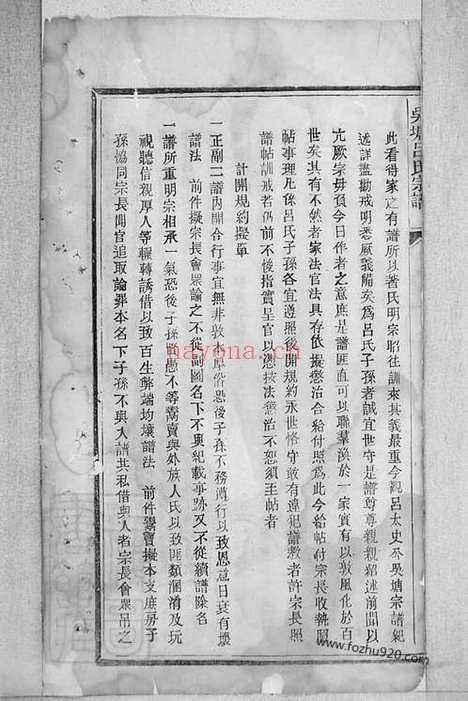 吳塘呂氏宗譜
此看得家之有譜所以著氏明宗昭往訓來其義最重今觀呂太史公吳塘宗譜紀
述詳盡勸戒明悉厥義備矣為呂氏子孫者誠宜世守是譜尊尊親親紹述前聞以
亢厥宗毋預今日作者之意庶是譜匪直可以聯羣渙於一家實有以敦風化於百
世矣其有不然者家法官法具存依擬懲治合給付照為此今給帖付宗長收執照
帖事理凡係呂氏子孫各宜遵照後開規約永世恪守敢有違犯譜教者許宗長照
譜帖訓戒若仍前不悛指實呈官以憑按法懲治不恕須至帖者
計開規約擬單
一正副二譜內開合行事宜無非敦本厚俗恐後子孫不務遵行以致恩意日衰有壞
譜法 前件擬宗長會眾諭之不從副圖名下不與紀載事跡又不從續譜除名
一譜所重明宗相承一氣恐後子孫賢愚不等鬻賣與外族人氏以致匪類溷淆及玩
視聽信親厚人等輾轉誘借以致百生弊端均壞譜法 前件鬻賣擬本支庶房子
孫協同宗長聞官追取論罪本名下子孫不與入譜其私借與人者宗長會眾吊之
nayona.cn
www.fozhu920.com